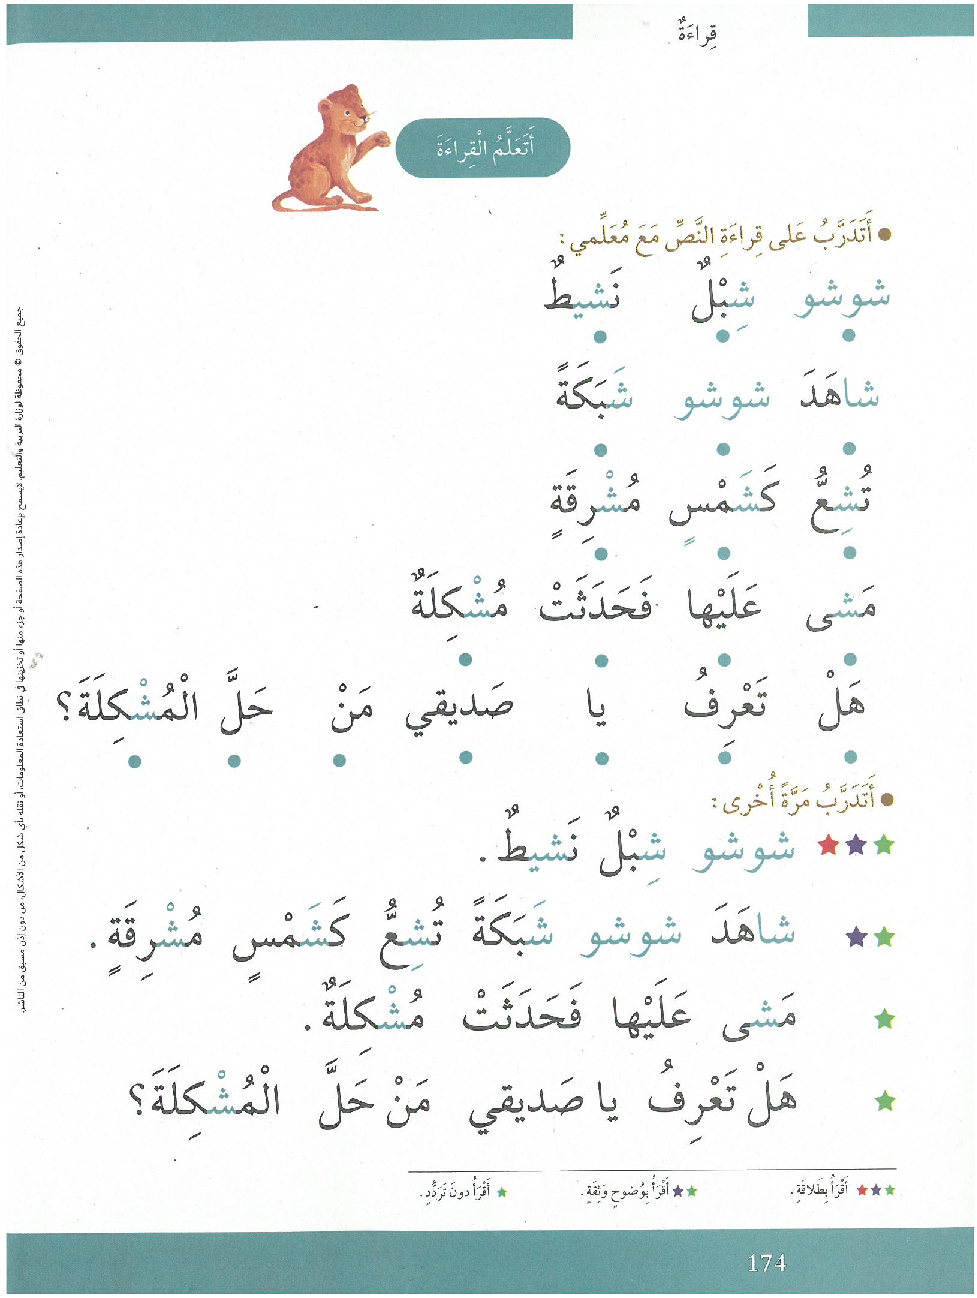 قِراءَةٌ
أَتَعَلَّمُ الْقِراءَةَ
● أَتَدَرَّبُ عَلى قِراءَةِ النَّصِّ مَعَ مُعَلِّمي :
شوشو شِبْلٌ نَشيطٌ
شاهَدَ شوشو شَبَكَةً
تُشِعُّ كَشَمْسٍ مُشْرِقَةٍ
مَشى عَلَيْها فَحَدَثَتْ مُشْكِلَةٌ
هَلْ تَعْرِفُ يا صَديقي مَنْ حَلَّ الْمُشْكِلَةَ؟
● أَتَدَرَّبُ مَرَّةً أُخْرى :
شوشو شِبْلٌ نَشيطٌ .
شاهَدَ شوشو شَبَكَةً تُشِعُّ كَشَمْسٍ مُشْرِقَةٍ .
مَشى عَلَيْها فَحَدَثَتْ مُشْكِلَةٌ .
هَلْ تَعْرِفُ يا صَديقي مَنْ حَلَّ الْمُشْكِلَةَ؟
أَقْرَأُ بِطَلاقَةٍ . أَقْرَأُ بِوُضوحٍ وَثِقَةٍ . أَقْرَأُ دونَ تَرَدُّدٍ .
174
جميع الحقوق © محفوظة لوزارة التربية والتعليم. لايسمح بإعادة إصدار هذه الصفحة أو جزء منها أو تخزينها في نطاق استعادة المعلومات، أو نقله بأي شكل من الأشكال، من دون إذن مسبق من الناشر.